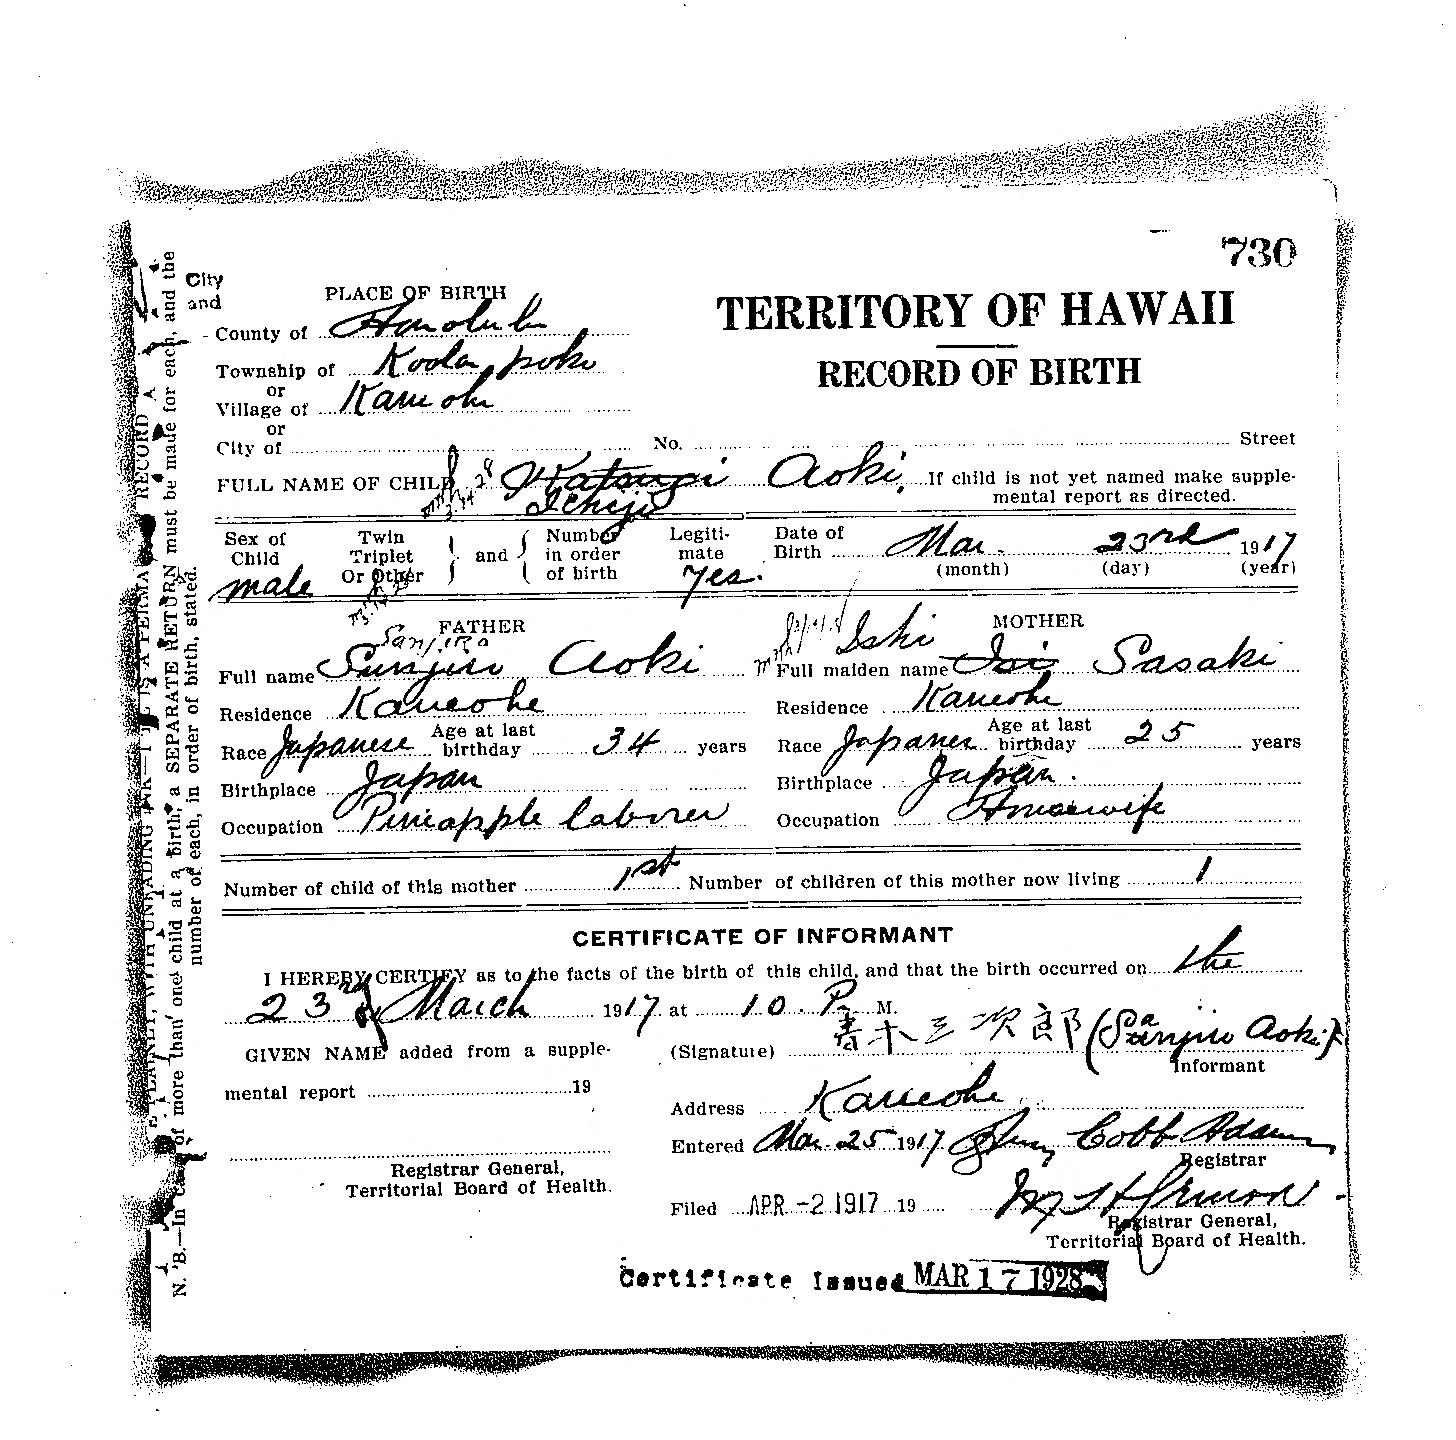 730
City
and
PLACE OF BIRTH
County of Honolulu
TERRITORY OF HAWAII
Township of Koolaupoko
RECORD OF BIRTH
or
Village of Kaneohe
or
City of No. Street
FULL NAME OF CHILD Aoki. If child is not yet named make supple-
Ichiji mental report as directed.
Sex of Child male
Twin Triplet Or Other and Number in order of birth
Legiti-mate Yes.
Date of Birth Mar. 23rd 1917
(month) (day) (year)
FATHER
MOTHER
Sanjiro
Ishi
Full name Sunjiro Aoki
Full maiden name Isi Sasaki
Residence Kaneohe
Residence Kaneohe
Race Japanese Age at last birthday 34 years
Race Japanese Age at last birthday 25 years
Birthplace Japan
Birthplace Japan.
Occupation Pineapple laborer
Occupation Housewife
Number of child of this mother 1st Number of children of this mother now living 1
CERTIFICATE OF INFORMANT
I HEREBY CERTIFY as to the facts of the birth of this child, and that the birth occurred on the
23rd of March 1917 at 10 P. M.
GIVEN NAME added from a supple-
mental report 19
Registrar General,
Territorial Board of Health.
(Signature) 青木三次郎 (Sanjiro Aoki)
Informant
Address Kaneohe
Entered Mar. 25 1917 Cobb Adams
Registrar
Filed APR -2 1917 19
Registrar General,
Territorial Board of Health.
Certificate Issued MAR 17 1928
N. B.—In case of more than one child at a birth, a SEPARATE RETURN must be made for each, and the
number of each, in order of birth, stated.